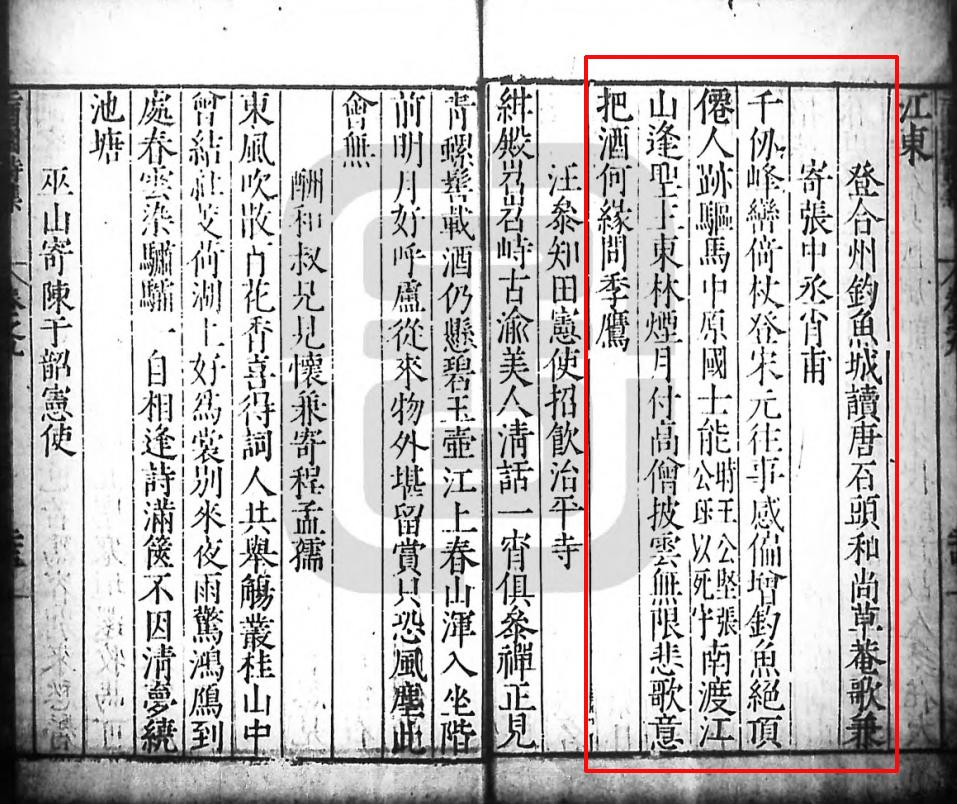 江東
登合州釣魚城讀唐石頭和尚草菴歌兼
寄張中丞肖甫
千仞峰巒倚杖登宋元往事感偏增釣魚絕頂
僊人跡驅馬中原國士能時王公堅張公珏以死守南渡江
山逢聖主東林煙月付高僧披雲無限悲歌意
把酒何緣問季鷹
汪叅知田憲使招飲治平寺
紺殿岩岩峙古渝美人清話一宵俱叅禪正見
青螺髻載酒仍懸碧玉壺江上春山渾入坐階
前明月好呼盧從來物外堪留賞只恐風塵此
會無
酬和叔兄見懷兼寄程孟孺
東風吹散百花香喜得詞人共舉觴叢桂山中
曾結社芰荷湖上好為裳別來夜雨驚鴻鴈到
處春雲染驌驦一自相逢詩滿篋不因清夢繞
池塘
巫山寄陳于韶憲使